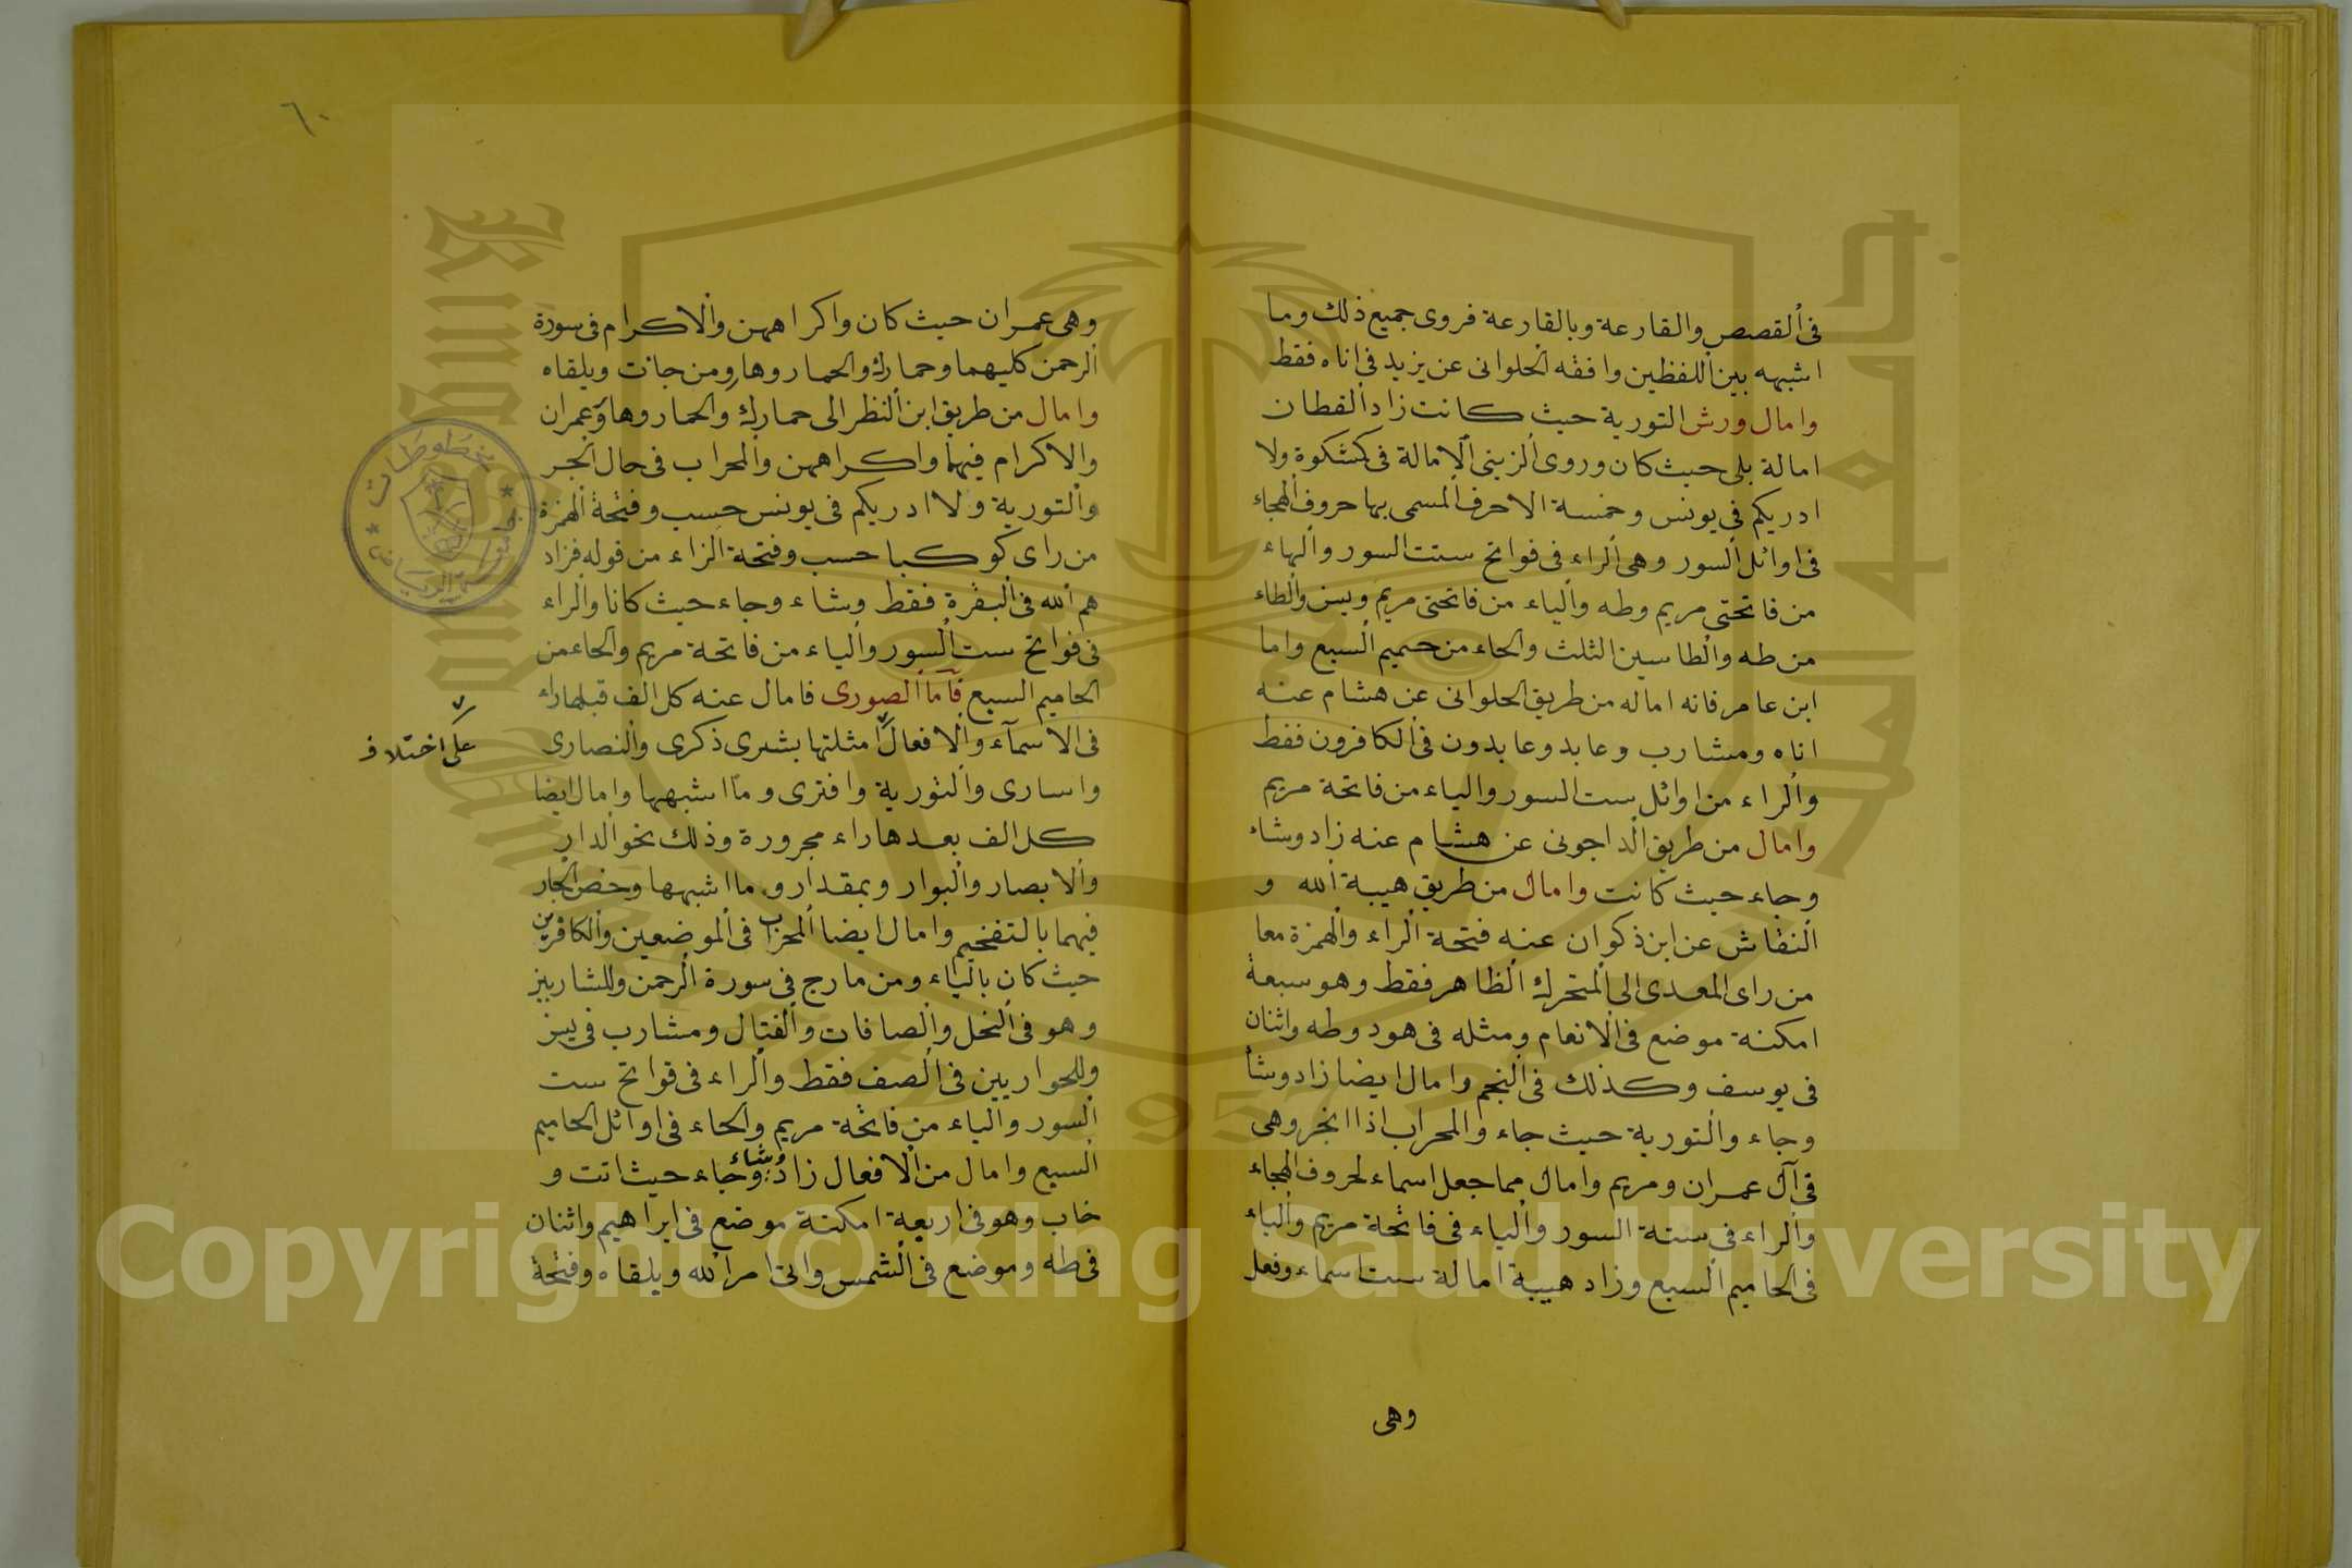 فى القصص والقارعة وبالقارعة فروى جميع ذلك وما
اشبهه بين اللفظين وافقه الحلوانى عن يزيد فى اناه فقط
وامال ورش التورية حيث كانت زاد القطان
امالة بلى حيث كان وروى الزينى الامالة فى كمشكوة ولا
ادريكم فى يونس وخمسة الاحرف المسمى بها حروف الهجاء
فى اوائل السور وهى الراء فى فواتح ستت السور والهاء
من فاتحتى مريم وطه والياء من فاتحتى مريم ويس والطاء
من طه والطاسين الثلث والحاء من حميم السبع واما
ابن عامر فانه اماله من طريق الحلوانى عن هشام عنه
اناه ومشارب وعابد وعابدون فى الكافرون فقط
والراء من اوائل ست السور والياء من فاتحة مريم
وامال من طريق الداجونى عن هشام عنه زاد وشاء
وجاء حيث كانت وامال من طريق هيبة الله و
النقاش عن ابن ذكوان عنه فتحة الراء والهمزة معا
من راى المعدى الى المتحرك الظاهر فقط وهو سبعة
امكنة موضع فى الانعام ومثله فى هود وطه واثنان
فى يوسف وكذلك فى النجم وامال ايضا زاد وشا
وجاء والتورية حيث جاء والمحراب اذا انجر وهى
فى آل عمران ومريم وامال مما جعل اسماء لحروف الهجاء
والراء فى ستة السور والياء فى فاتحة مريم والياء
فى الحاميم السبع وزاد هيبة امالة ست اسماء وفعل
وهى
٦٠
وهى عمران حيث كان واكراههن والاكرام فى سورة
الرحمن كليهما وحمارك والحمار وهار ومن جانت ويلقاه
وامال من طريق ابن النظر الى حمارك والحمار وهار وعمران
والاكرام فيهما واكراههن والمحراب فى حال الجر
والتورية ولا ادريكم فى يونس حسب وفتحة الهمزة
من راى كوكبا حسب وفتحة الزاء من قوله فزاد
هم الله فى البقرة فقط وشاء وجاء حيث كانا والراء
فى فواتح ست السور والياء من فاتحة مريم والحاء من
الحاميم السبع فاما الصورى فامال عنه كل الف قبلها راء
فى الاسماء والافعال امثلتها بشرى ذكرى والنصارى
على اختلاف
واسارى والتورية وافترى وما اشبهها وامال ايضا
كل الف بعدها راء مجرورة وذلك نحو الدار
والابصار والبوار وبمقدار وما اشبهها وخص الجار
فيهما بالتفخيم وامال ايضا المحراب فى الموضعين والكافرين
حيث كان بالياء ومن مارج فى سورة الرحمن وللشاربين
وهو فى النحل والصافات والقتال ومشارب فى يس
وللحواريين فى الصف فقط والراء فى فواتح ست
السور والياء من فاتحة مريم والحاء فى اوائل الحاميم
السبع وامال من الافعال زاد وشاء وجاء حيث اتت و
خاب وهو فى اربعة امكنة موضع فى ابراهيم واثنان
فى طه وموضع فى الشمس واتى امر الله ويلقاه وفتحة
Copyright © King Saud University
1957